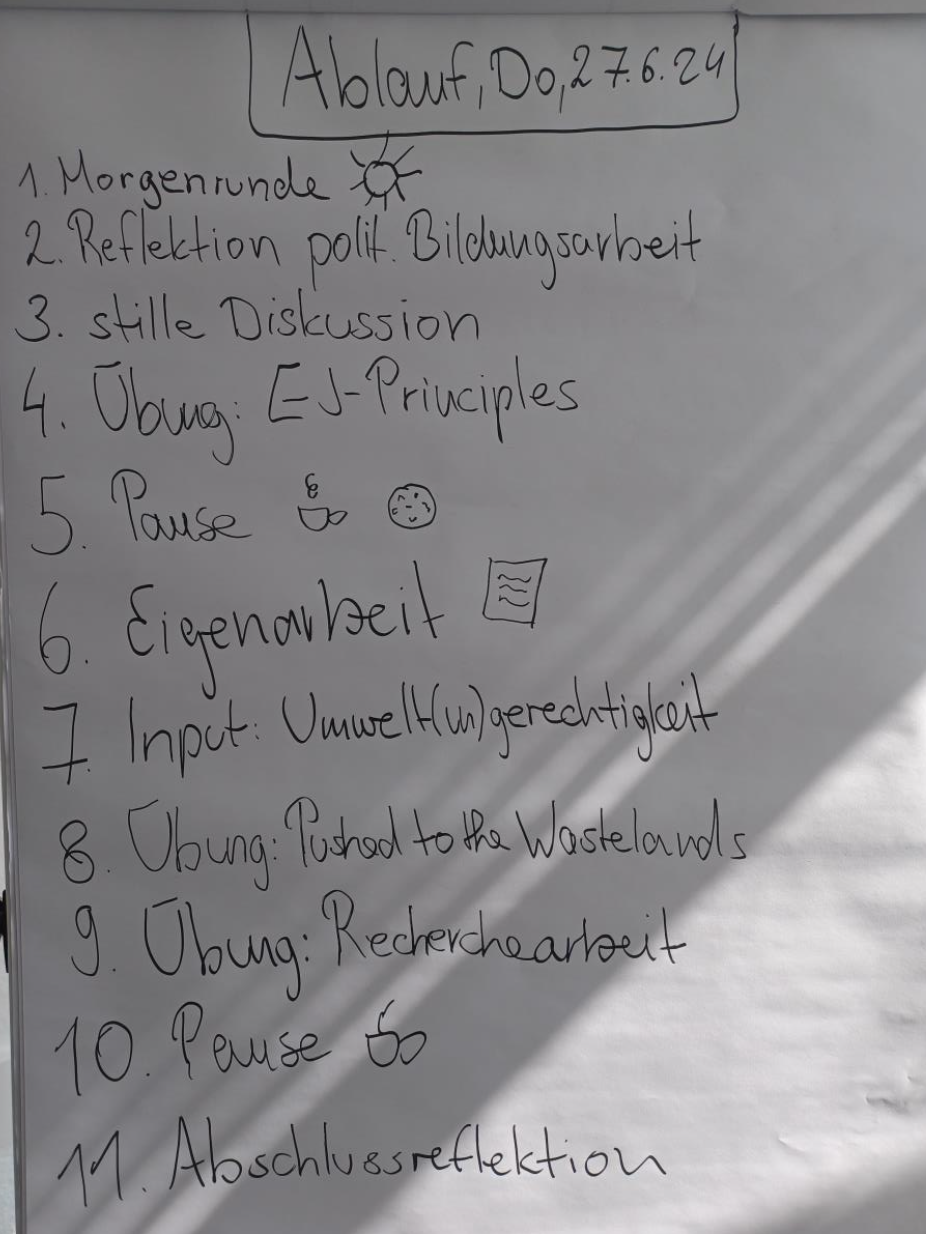 Ablauf, Do, 27.6.24
1. Morgenrunde
2. Reflektion polit. Bildungsarbeit
3. stille Diskussion
4. Übung: EJ-Principles
5. Pause
6. Eigenarbeit
7. Input: Umwelt(un)gerechtigkeit
8. Übung: Pushed to the Wastelands
9. Übung: Recherchearbeit
10. Pause
11. Abschlussreflektion